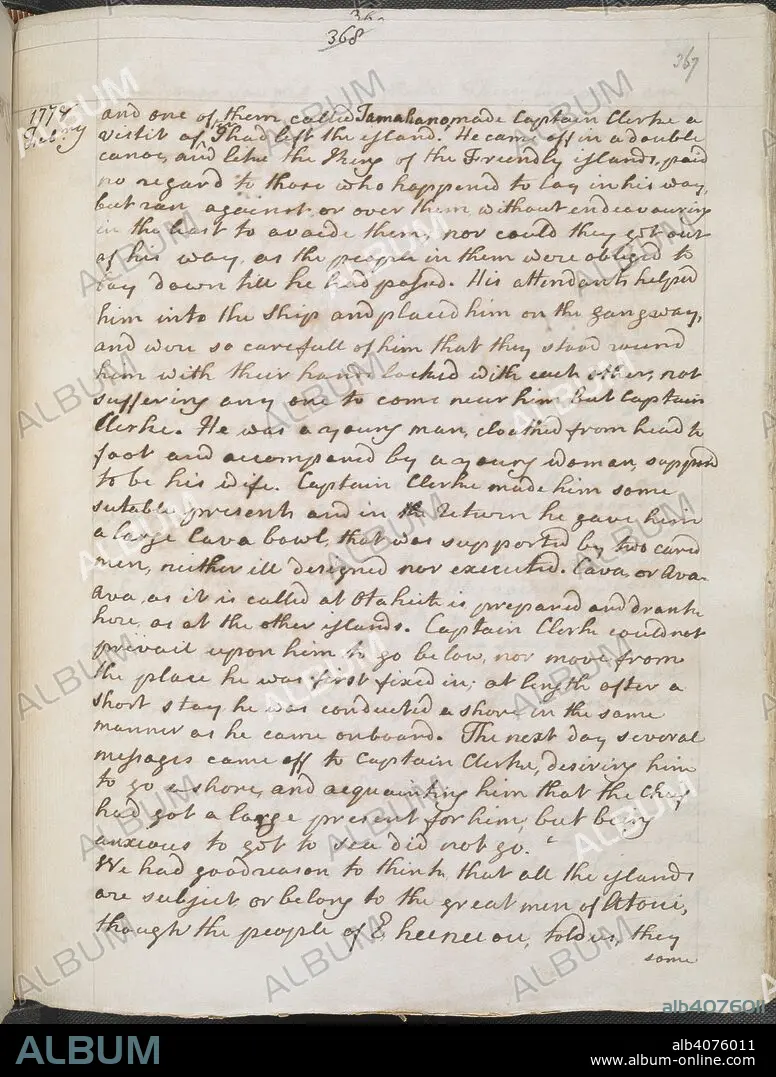 368
367
1778
Febry
and one of them called Tamahano, made Captain Clerke a
visit after I had left the island. He came off in a double
canoe, and like the King of the Friendly islands, paid
no regard to those who happened to lay in his way,
but ran against or over them without endeavouring
in the least to avoide them, nor could they get out
of his way, as the people in them were obliged to
lay down till he had passed. His attendants helped
him into the Ship and placed him on the gangway,
and were so carefull of him that they stood round
him with their hands locked with each other, not
suffering any one to come near him but Captain
Clerke. He was a young man, cloathed from head to
foot and accompaned by a young woman, supposed
to be his wife. Captain Clerke made him some
sutable presents and in return he gave him
a large Cava bowl, that was supported by two carved
men, neither ill designed nor executed. Cava, or Ava
Ava, as it is called at Otaheite is prepared and drank
here, as at the other islands. Captain Clerke could not
prevail upon him to go below, nor move from
the place he was first fixed in; at length after a
short stay he was conducted a shore in the same
manner as he came onboard. The next day several
messages came off to Captain Clerke, desiring him
to go a shore, and acquainting him that the Chief
had got a large present for him, but being
anxious to get to sea did not go.
We had good reason to think that all the islands
are subject, or belong to the great men of Atoui,
though the people of Eheeneeou, told us, they
some
ALBUM
alb4076011
ALBUM
alb4076011
www.album-online.com